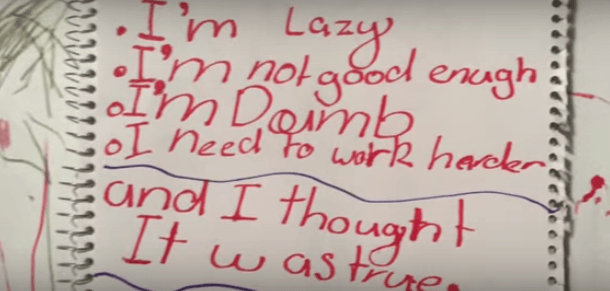 • I'm Lazy
• I'm not good enugh
• I'm Doumb
• I need to work harder
and I thought
It was true.